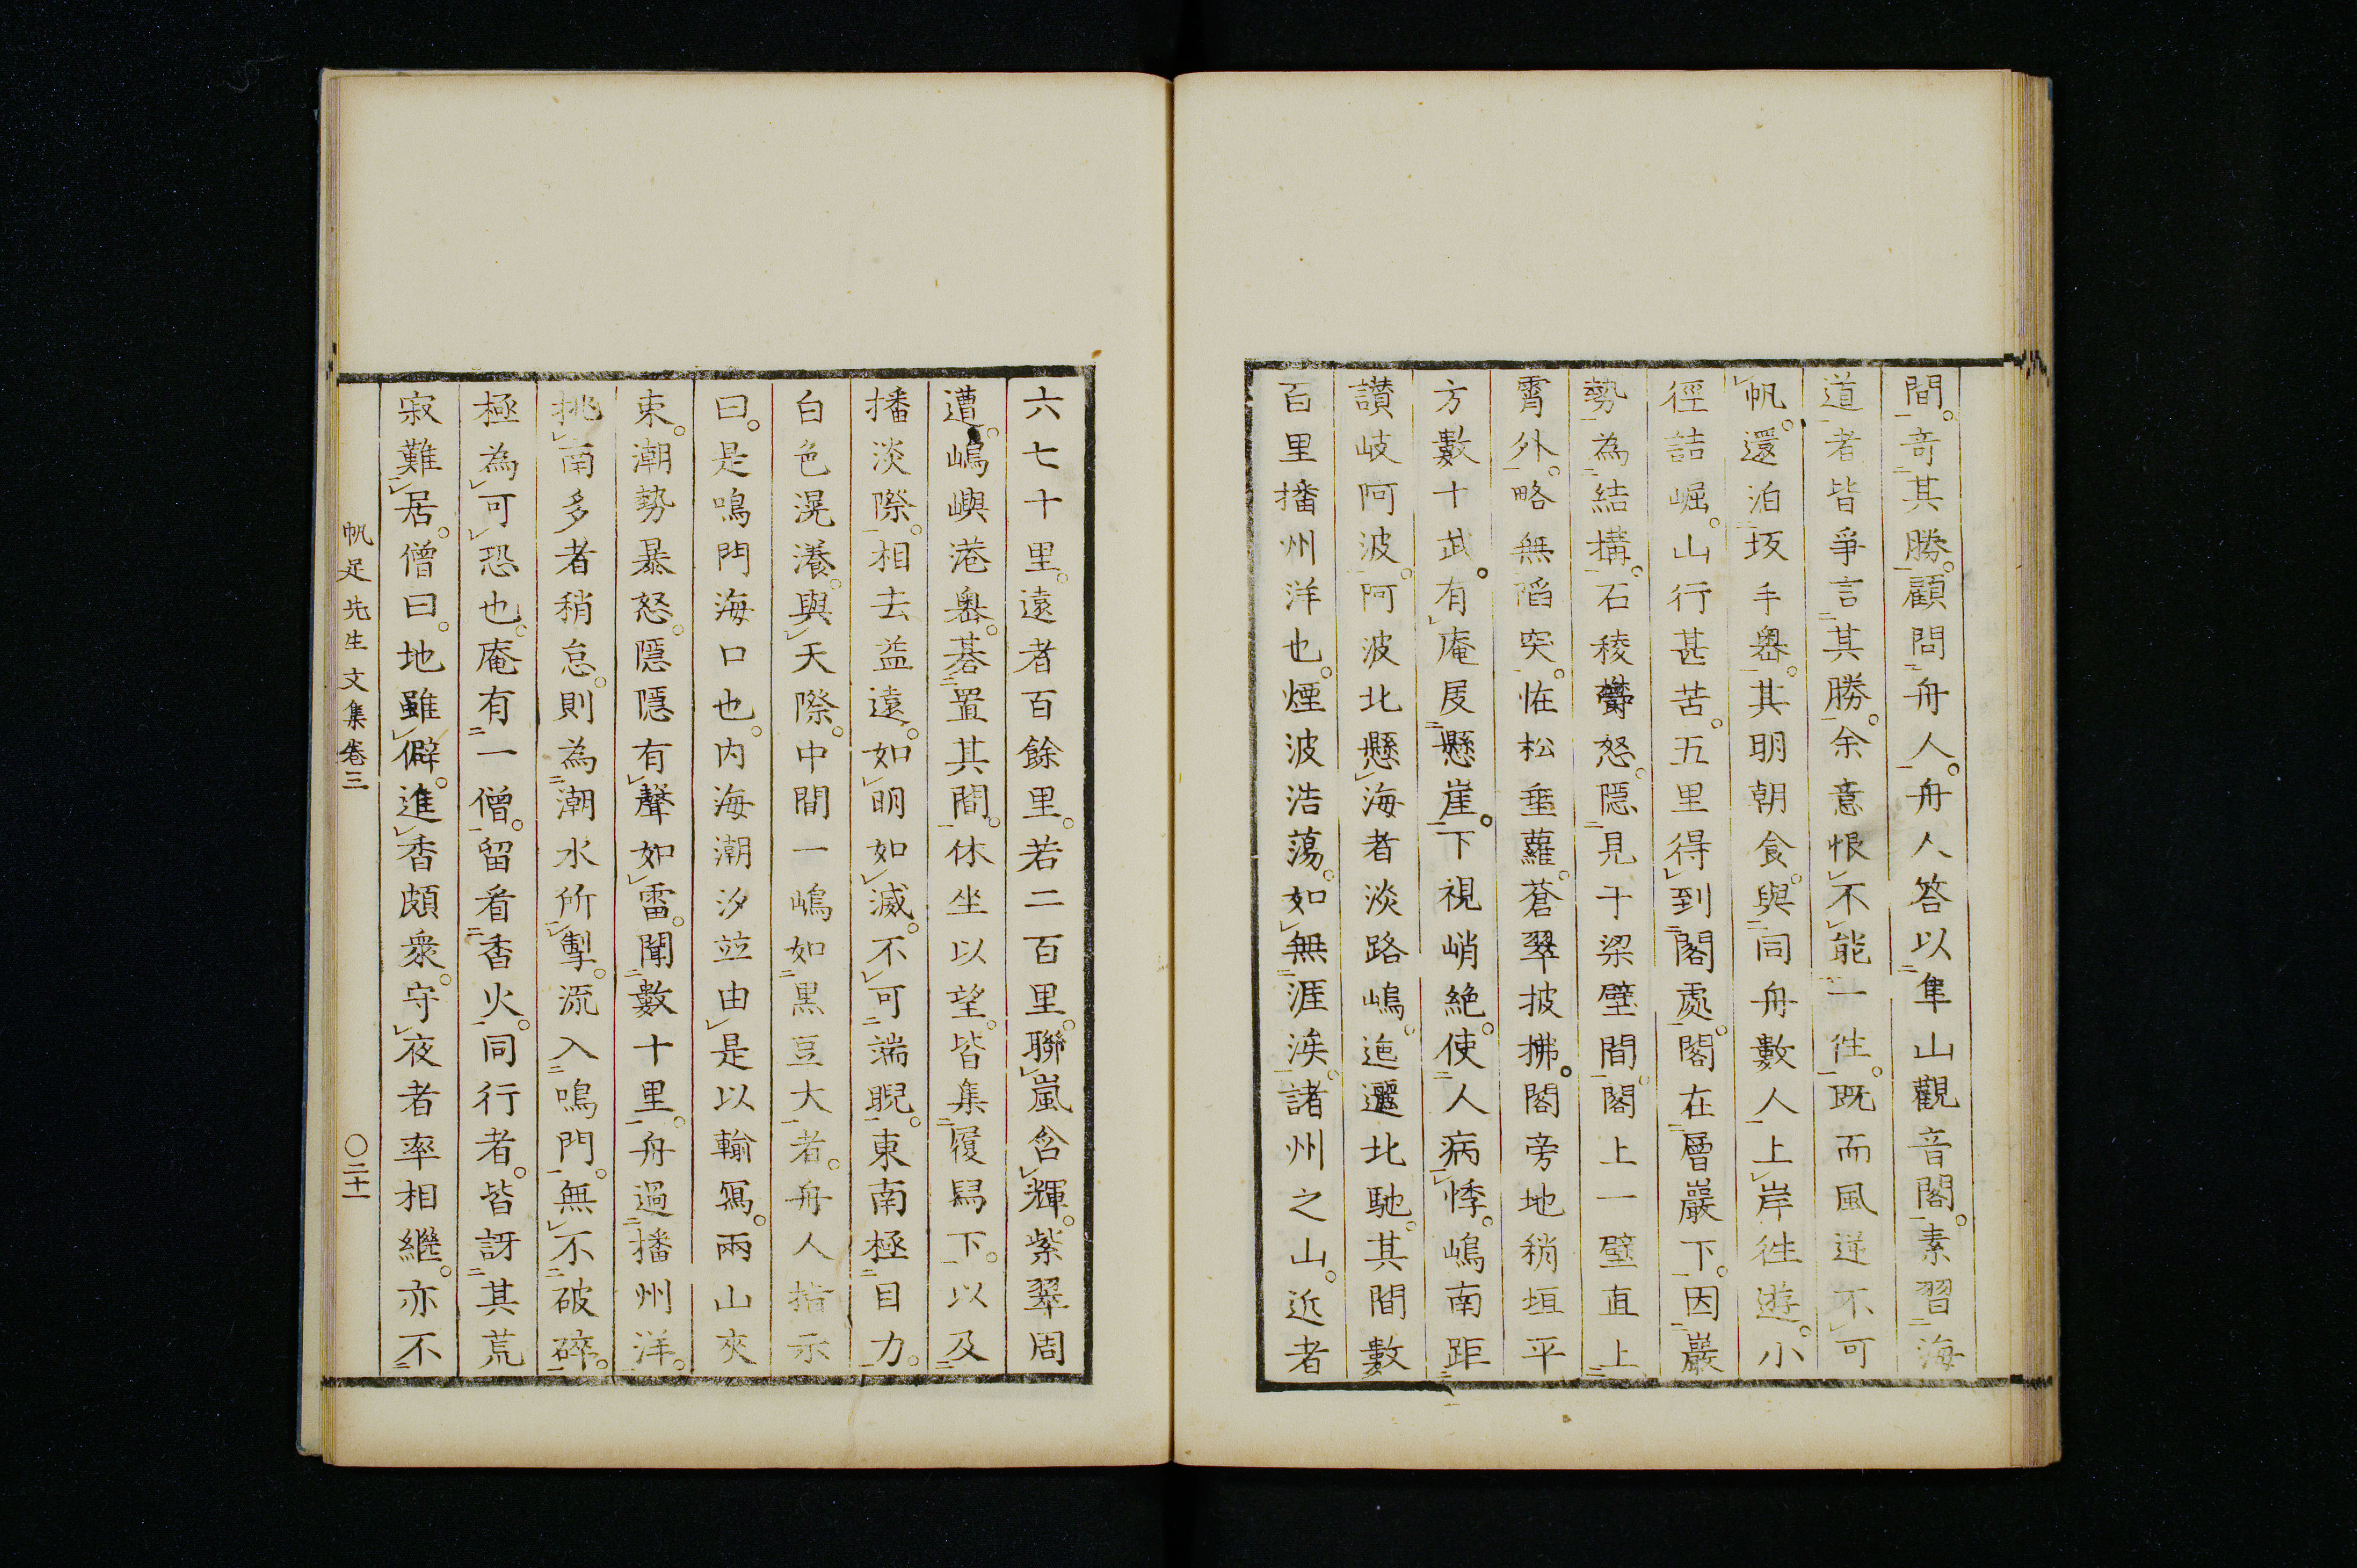 間。奇其勝。顧問舟人。舟人答以隼山觀音閣。素習海
道者皆爭言其勝。余意恨不能一徃。既而風逆不可
帆。還泊坂手嶴。其明朝食。與同舟數人上岸徃遊。小
徑詰崛。山行甚苦。五里得到閣處。閣在層巖下。因巖
勢為結搆。石稜怒。隱見于梁壁間。閣上一壁直上
霄外。略無謟突。恠松垂蘿。蒼翠披拂。閣旁地稍垣平
方數十武。有庵。懸崖。下視峭絶。使人病悸。嶋南距
讃岐阿波。阿波北懸海者淡路嶋。迤邐北馳。其間數
百里播州洋也。煙波浩蕩。如無涯涘。諸州之山。近者
六七十里。遠者百餘里。若二百里。聯嵐含輝。紫翠周
遭。嶋嶼港嶴。碁置其間。休坐以望。皆集履舄下。以及
播淡際。相去益遠。如明如滅。不可端睨。東南極目力。
白色滉瀁。與天際。中間一嶋如黒豆大者。舟人指示
曰。是鳴門海口也。内海潮汐竝由是以輸寫。兩山夾
束。潮勢暴怒。隱隱有聲如雷。聞數十里。舟過播州洋。
挑南多者稍怠。則為潮水所掣。流入鳴門。無不破碎。
極為可恐也。庵有一僧。留看香火。同行者。皆訝其荒
寂難居。僧曰。地雖僻。進香頗衆。守夜者率相繼。亦不
帆足先生文集卷三
〇二十一